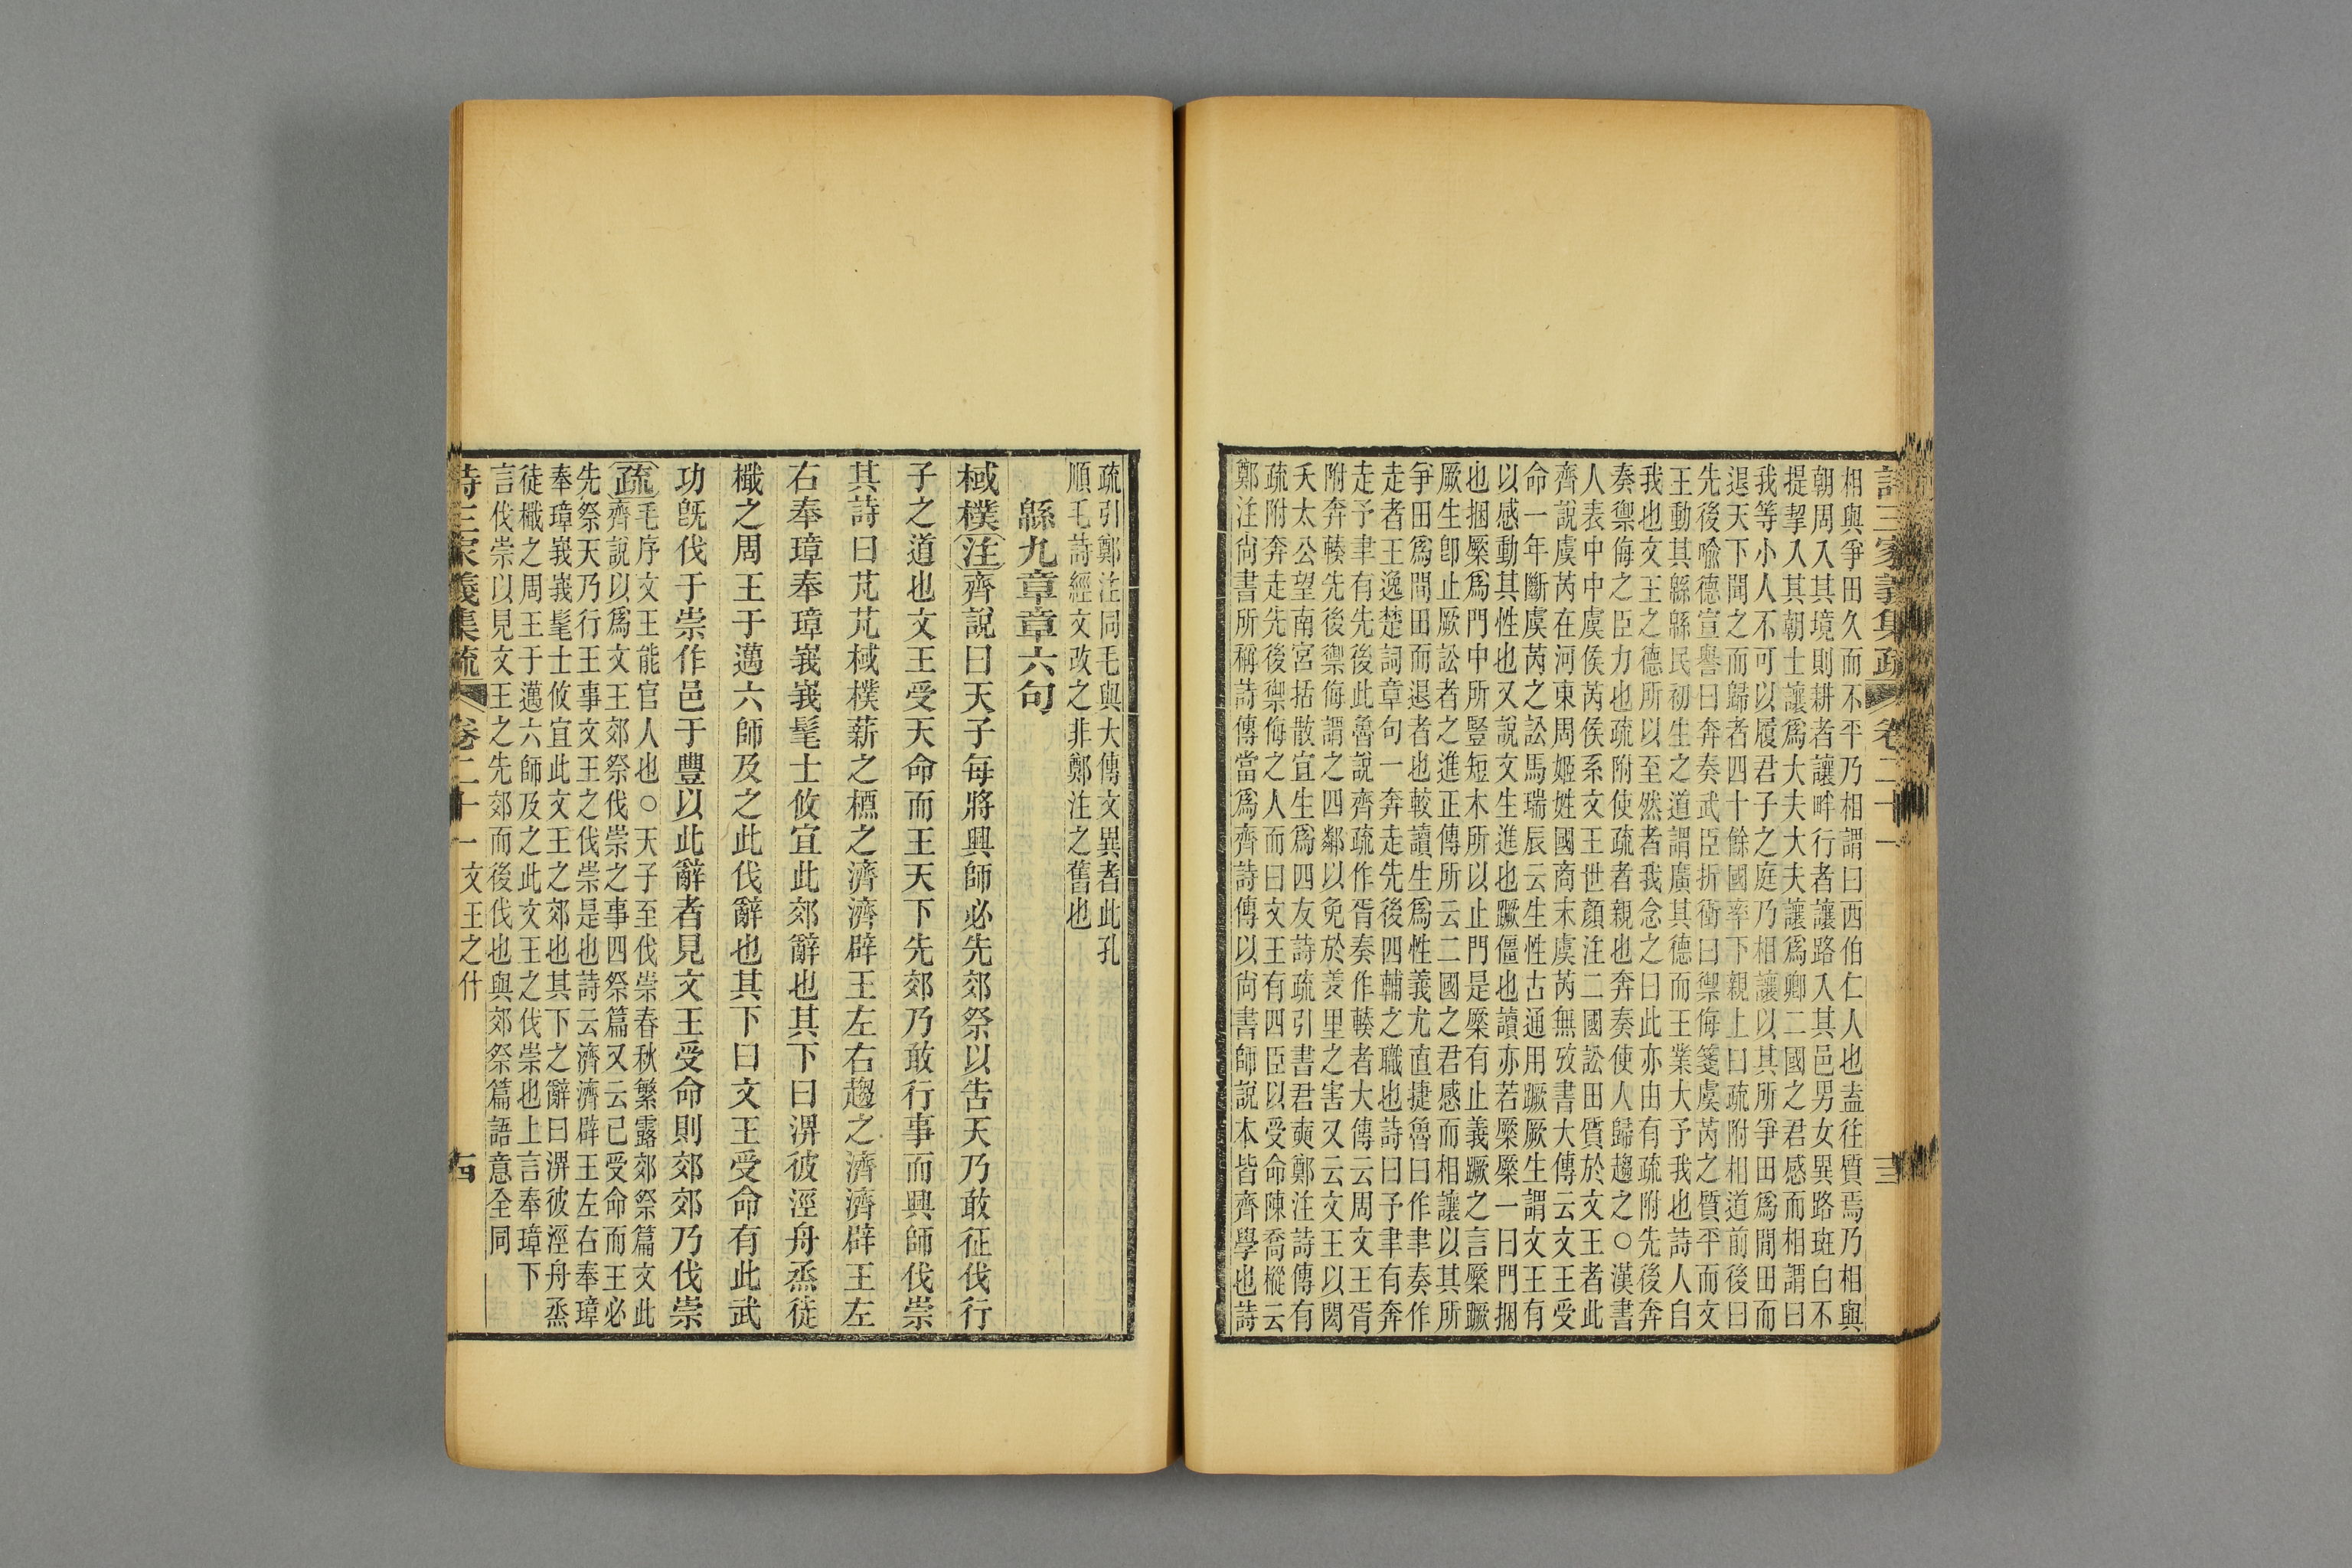 詩三家義集疏 卷二十一 十三
相與爭田久而不平乃相謂曰西伯仁人也盍往質焉乃相與
朝周入其境則耕者讓畔行者讓路入其邑男女異路斑白不
提挈入其朝士讓爲大夫大夫讓爲卿二國之君感而相謂曰
我等小人不可以履君子之庭乃相讓以其所爭田爲閒田而
退天下聞之而歸者四十餘國率下親上曰疏附相道前後曰
先後喩德宣譽曰奔奏武臣折衝曰禦侮箋虞芮之質平而文
王動其緜緜民初生之道謂廣其德而王業大予我也詩人自
我也文王之德所以至然者我念之曰此亦由有疏附先後奔
奏禦侮之臣力也疏附使疏者親也奔奏使人歸趨之○漢書
人表中中虞侯芮侯系文王世顏注二國訟田質於文王者此
齊說虞芮在河東周姬姓國商末虞芮無攷書大傳云文王受
命一年斷虞芮之訟馬瑞辰云生性古通用蹶厥生謂文王有
以感動其性也又說文生進也蹶僵也讀亦若橜橜一曰門捆
也捆橜爲門中所豎短木所以止門是橜有止義蹶之言橜蹶
厥生卽止厥訟者之進正傳所云二國之君感而相讓以其所
爭田爲閒田而退者也較讀生爲性義尤直捷魯曰作聿奏作
走者王逸楚詞章句一奔走先後四輔之職也詩曰予聿有奔
走予聿有先後此魯說齊疏作胥奏作輳者大傳云周文王胥
附奔輳先後禦侮謂之四鄰以免於羑里之害又云文王以閎
夭太公望南宮括散宜生爲四友詩疏引書君奭鄭注詩傳有
疏附奔走先後禦侮之人而曰文王有四臣以受命陳喬樅云
鄭注尙書所稱詩傳當爲齊詩傳以尙書師說本皆齊學也詩
疏引鄭注同毛與大傳文異者此孔
順毛詩經文改之非鄭注之舊也
緜九章章六句
棫樸注齊說曰天子每將興師必先郊祭以告天乃敢征伐行
子之道也文王受天命而王天下先郊乃敢行事而興師伐崇
其詩曰芃芃棫樸薪之槱之濟濟辟王左右趨之濟濟辟王左
右奉璋奉璋峩峩髦士攸宜此郊辭也其下曰淠彼涇舟烝徒
檝之周王于邁六師及之此伐辭也其下曰文王受命有此武
功旣伐于崇作邑于豐以此辭者見文王受命則郊郊乃伐崇
疏毛序文王能官人也○天子至伐崇春秋繁露郊祭篇文此
齊說以爲文王郊祭伐崇之事四祭篇又云已受命而王必
先祭天乃行王事文王之伐崇是也詩云濟濟辟王左右奉璋
奉璋峩峩髦士攸宜此文王之郊也其下之辭曰淠彼涇舟烝
徒檝之周王于邁六師及之此文王之伐崇也上言奉璋下
言伐崇以見文王之先郊而後伐也與郊祭篇語意全同
詩三家義集疏 卷二十一 文王之什 十四